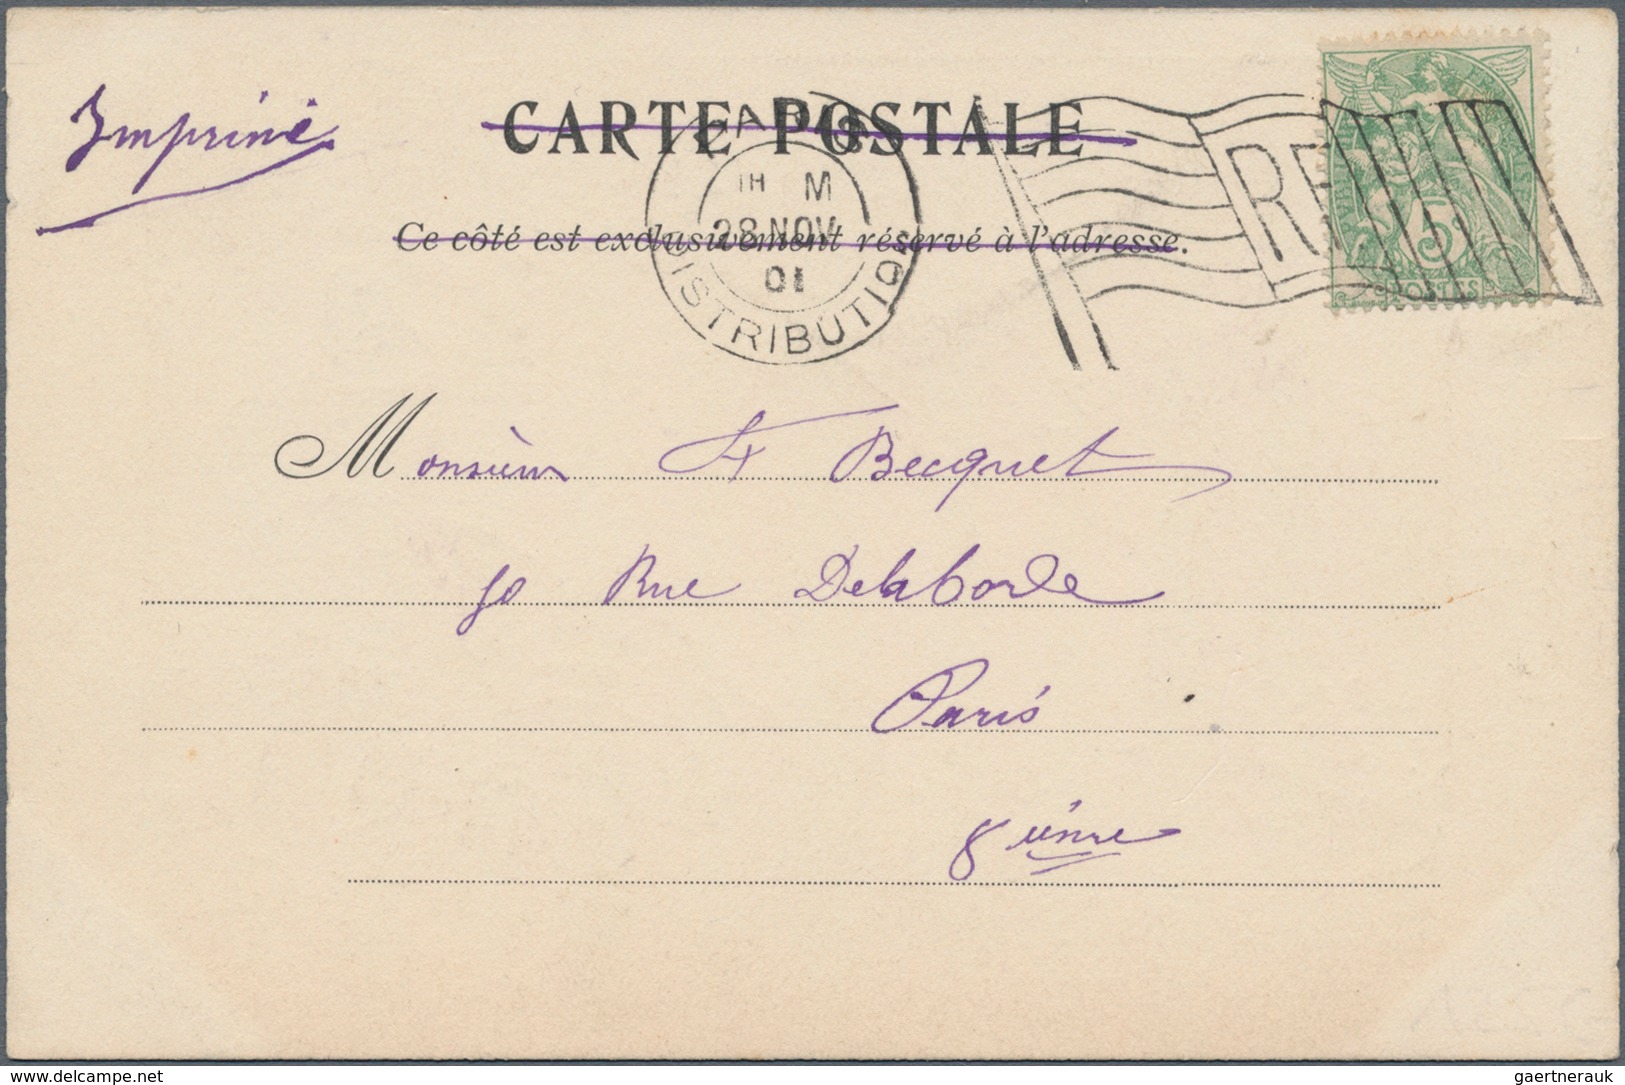 Imprimé
CARTE POSTALE
PARIS
1H M
28 NOV
01
DISTRIBUTION
RF
5
POSTES
Ce côté est exclusivement réservé à l'adresse.
Monsieur F Becquet
50 Rue Delaborde
Paris
8 ième
gaertnerauk
www.delcampe.net